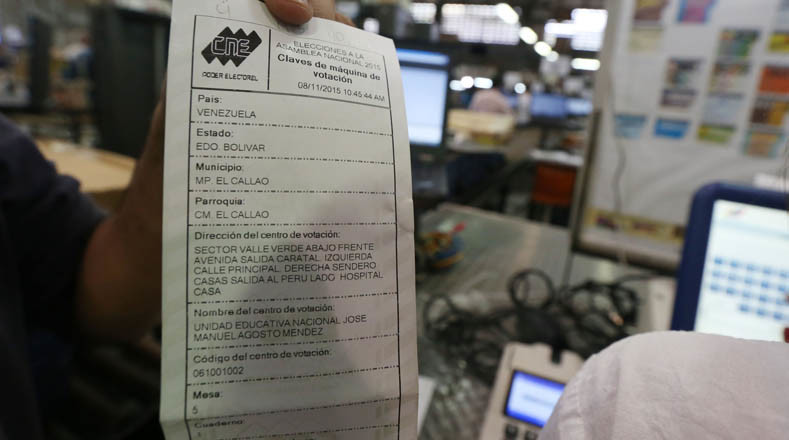 CNE
PODER ELECTORAL
ELECCIONES A LA
ASAMBLEA NACIONAL 2015
Claves de máquina de
votación
08/11/2015 10:45:44 AM
País:
VENEZUELA
Estado:
EDO. BOLIVAR
Municipio:
MP. EL CALLAO
Parroquia:
CM. EL CALLAO
Dirección del centro de votación:
SECTOR VALLE VERDE ABAJO FRENTE
AVENIDA SALIDA CARATAL. IZQUIERDA
CALLE PRINCIPAL. DERECHA SENDERO
CASAS SALIDA AL PERU LADO HOSPITAL
CASA
Nombre del centro de votación:
UNIDAD EDUCATIVA NACIONAL JOSE
MANUEL AGOSTO MENDEZ
Código del centro de votación:
061001002
Mesa:
5
Cuaderno:
1